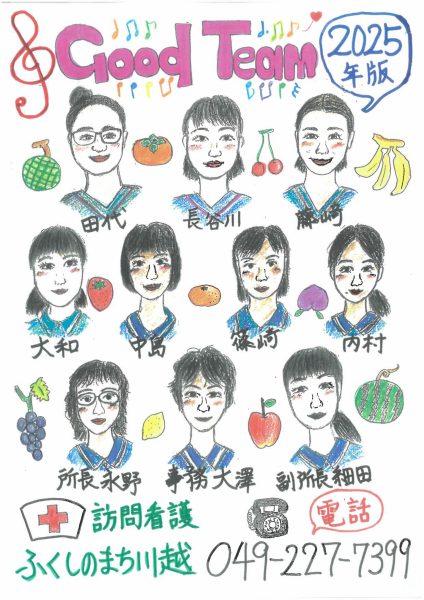 Good Team
2025
年版
田代 長谷川 藤崎
大和 中島 篠崎 内村
所長 永野 事務 大澤 副所長 細田
訪問看護 電話
ふくしのまち川越 049-227-7399